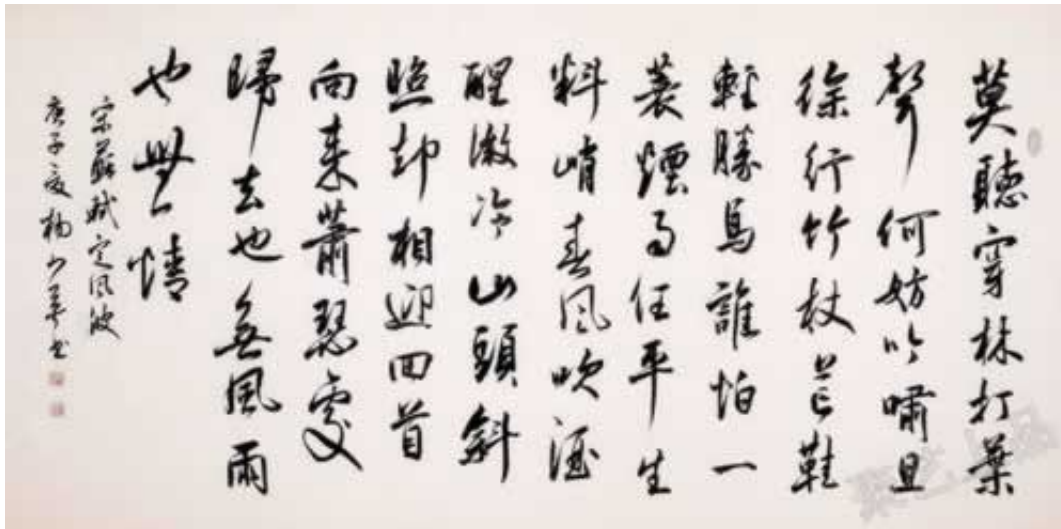 莫聽穿林打葉
聲何妨吟嘯且
徐行竹杖芒鞋
輕勝馬誰怕一
蓑煙雨任平生
料峭春风吹酒
醒微冷山頭斜
照却相迎回首
向来蕭瑟處
歸去也無風雨
也無情
宋蘇軾定风波
庚子夏楊少书